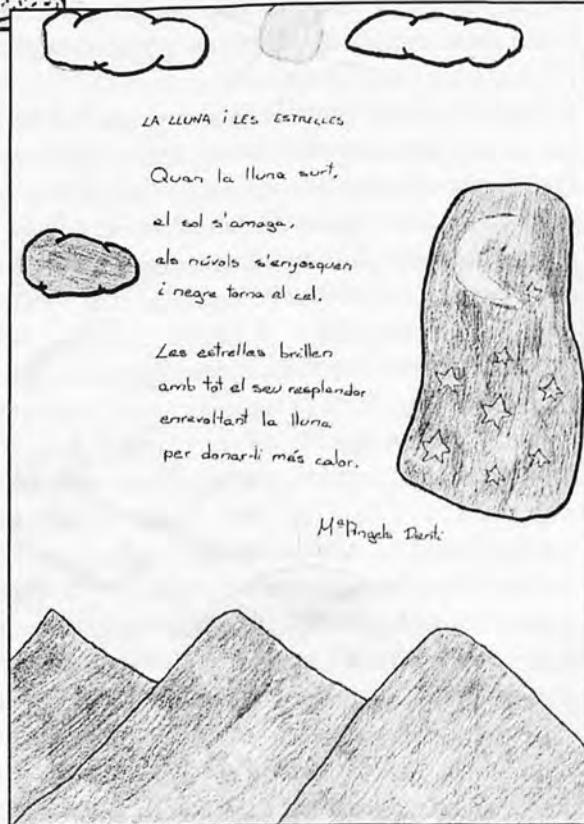 LA LLUNA i LES ESTRELLES
Quan la lluna surt,
el sol s'amaga,
els núvols s'enfosquen
i negre torna el cel.
Les estrelles brillen
amb tot el seu resplandor
enrevoltant la lluna
per donar-li más calor.
Mª Àngels